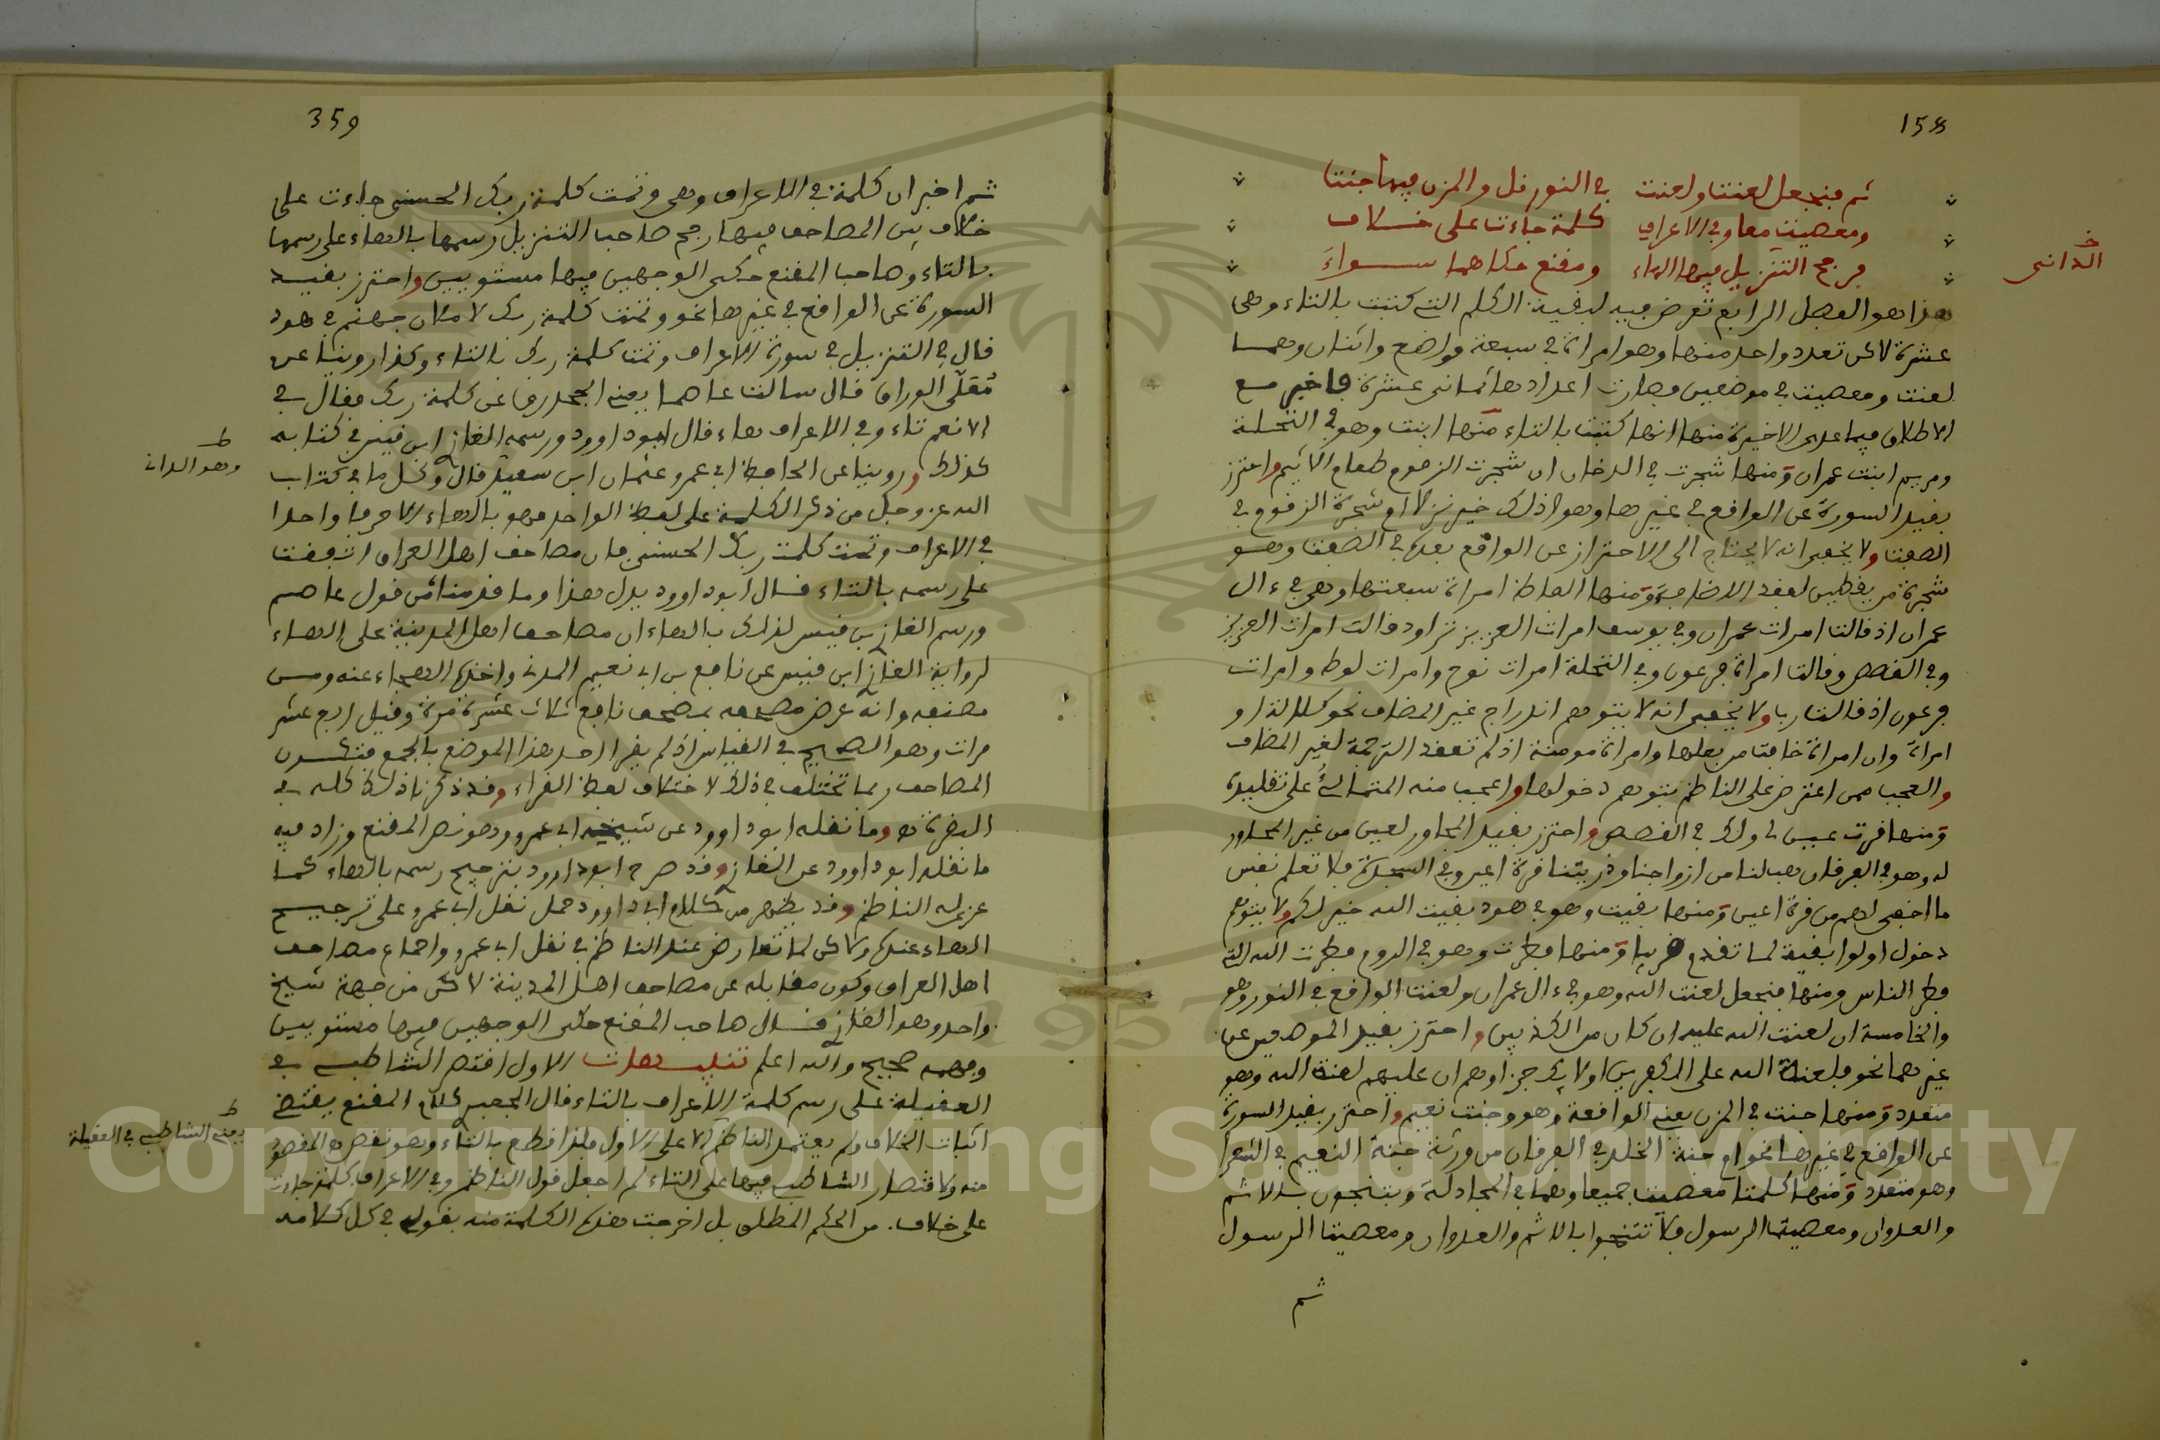 158
ثم فنجعل لعنت ولعنت في النور قل والمزن فيها جنت
ومعصيت معا وفي الاعراف كلمة جاءت على خلاف
فرجح التنزيل فيها الهاء ومقنع حكاهما سواء
الداني
هذا هو الفصل الرابع تعرض فيه لبقية الكلم التي كتبت بالتاء وهي
عشرة لاكن تعدد واحد منها وهو امراة في سبعة مواضع واثنان وهما
لعنت ومعصيت في موضعين فصارت اعدادها ثماني عشرة فاخبر مع
الاطلاق فيما عدى الاخيرة منها انها كتبت بالتاء منها ابنت وهو في التحلة
ومريم ابنت عمران ومنها شجرت في الدخان ان شجرت الزقوم طعام الاثيم واحترز
بقيد السورة عن الواقع في غيرها وهو اذلك خير نزلا ام شجرة الزقوم في
الصفت ولا يخفى انه لا يحتاج الى الاحتراز عن الواقع بعده في الصفت وهو
شجرة من يقطين لفقد الاضافة ومنها الفاظ امراة سبعتها وهي في ءال
عمران اذ قالت امرات عمران وفي يوسف امرات العزيز تراود قالت امرات العزيز
وفي القصص وقالت امراة فرعون وفي التحلة امرات نوح وامرات لوط وامرات
فرعون اذ قالت رب ولا يخفى انه لا يتوهم اندراج غير المضاف نحو كلالة او
امراة وان امراة خافت من بعلها وامراة مومنة اذ لم تعقد الترجمة لغير المضاف
والعجب ممن اعترض على الناظم بتوهم دخولها واعجب منه المتمالئ على تقليده
ومنها قرت عين لي ولك في القصص واحترز بقيد المجاور لعين من غير المجاور
له وهو في الفرقان هب لنا من ازواجنا وذريتنا قرة اعين وفي السجدة فلا تعلم نفس
ما اخفي لهم من قرة اعين ومنها بقيت وهو في هود بقيت الله خير لكم ولا يتوهم
دخول اولوا بقية لما تقدم قريبا ومنها فطرت وهو في الروم فطرت الله التي
فطر الناس ومنها فنجعل لعنت الله وهو في ءال عمران ولعنت الواقع في النور وهو
والخامسة ان لعنت الله عليه ان كان من الكذبين واحترز بقيد الموضعين عن
غيرهما نحو فلعنة الله على الكفرين اولايك جزاوهم ان عليهم لعنة الله وهو
متعدد ومنها جنت في المزن يعني الواقعة وهو وجنت نعيم واحترز بقيد السورة
عن الواقع في غيرها نحو ام جنة الخلد في الفرقان من ورثة جنة النعيم في الشعرا
وهو متعدد ومنها كلمتا معصيت جميعا وهما في المجادلة ويتنجون بالاثم
والعدوان ومعصيت الرسول فلا تتنجوا بالاثم والعدوان ومعصيت الرسول
ثم
359
ثم اخبر ان كلمة في الاعراف وهي وتمت كلمة ربك الحسنى جاءت على
خلاف بين المصاحف فيها رجح صاحب التنزيل رسمها بالهاء على رسمها
بالتاء وصاحب المقنع حكى الوجهين فيها مستويين واحترز بقيد
السورة عن الواقع في غيرها نحو وتمت كلمة ربك لاملان جهنم في هود
قال في التنزيل في سورة الاعراف وتمت كلمة ربك بالتاء وكذا روينا عن
مُعَلَّى الوراق قال سالت عاصما يعني الجحدري عن كلمة ربك فقال في
الانعم تاء وفي الاعراف هاء قال ابو داوود ورسمه الغاز ابن قيس في كتابه
كذلك وروينا عن الحافظ ابي عمرو عثمان ابن سعيد قال وكل ما في كتاب
وهو الداني
الله عز وجل من ذكر الكلمة على لفظ الواحد فهو بالهاء الا حرفا واحدا
في الاعراف وتمت كلمت ربك الحسنى فان مصاحف اهل العراق اتفقت
على رسمه بالتاء قال ابو داوود يدل هذا وما قدمناه من قول عاصم
ورسم الغاز بن قيس لذلك بالهاء ان مصاحف اهل المدينة على الهاء
لرواية الغاز ابن قيس عن نافع بن ابي نعيم المدني واخذه الهجاء عنه ومن
مصنفه وانه عرض مصحفه بمصحف نافع ثلاث عشرة مرة وقيل اربع عشر
مرات وهو الصحيح في القياس اذ لم يقرا احد هذا الموضع بالجمع فتكون
المصاحف ربما تختلف في ذلك لاختلاف لفظ القراء وقد ذكرنا ذلك كله في
البقرة ه وما نقله ابو داوود عن شيخه ابي عمرو وهو نص المقنع وزاد فيه
ما نقله ابو داوود عن الغاز وقد صرح ابو داوود بترجيح رسمه بالهاء كما
عزى له الناظم وقد يظهر من كلام ابي داوود حمل نقل ابي عمرو على ترجيح
الهاء عنده ولاكن لما تعارض عند الناظم في نقل ابي عمرو اجماع مصاحف
اهل العراق وكون مقابله عن مصاحف اهل المدينة لاكن من جهة شيخ
واحد وهو الغاز قال صاحب المقنع حكى الوجهين فيها مستويين
وفهمه صحيح والله اعلم تنبيهات الاول اقتصر الشاطبي في
العقيلة على رسم كلمة الاعراف بالتاء قال الجعبري كلام المقنع يقتضي
اثبات الخلاف ولم يعتمد الناظم الا على الاول فلذا قطع بالتاء وهو نقص من المقصود
يعني الشاطبي في العقيلة
منه ولاقتصار الشاطبي فيها على التاء لم اجعل قول الناظم وفي الاعراف كلمة جاءت
على خلاف من الحكم المطلق بل اخرجت هذه الكلمة منه بقوله في كل كلامه
Copyright © King Saud University
1957